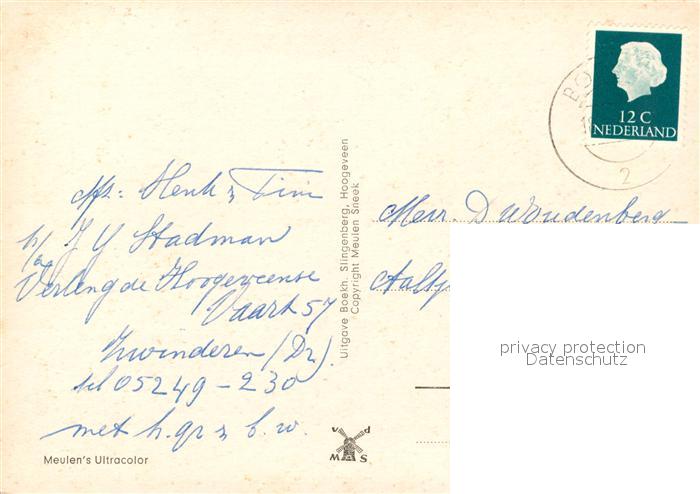 afz: Henk & Tini
p/a J Y Stadman
Verlengde Hoogeveense
Vaart 57
Zwinderen (Dr).
tel 05249-230
met h. gr & b. w.
Meulen's Ultracolor
Uitgave Boekh. Slingenberg, Hoogeveen
Copyright Meulen Sneek
v d
M S
BO
2
12 C
NEDERLAND
Mevr. D Woudenberg
Aaltj
privacy protection
Datenschutz